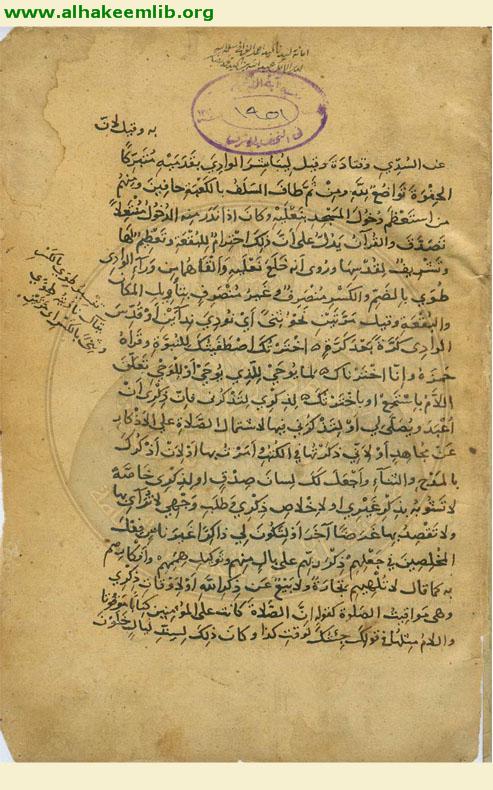 www.alhakeemlib.org
١٩٥١
به وقيل لان
عن السدي وقتادة وقيل ليباشر الوادي بقدميه متبركا
الحفوة تواضع لله ومن ثم طاف السلف بالكعبة حافين ومنهم
من استعظم دخول المسجد بنعليه وكان اذا ندر منه الدخول منتعلا
تصدق والقرآن يدل على ان ذلك احترام للبقعة وتعظيم لها
وتشريف لقدسها وروى انه خلع نعليه والقاهما من وراء الوادي
طوى بالضم والكسر منصرف وغير منصرف بتأويل المكان
والبقعة وقيل مرتين نحو ثنى اي نودي نداءين او قدس
الوادي كرة بعد كرة اخترتك اصطفيتك للنبوة وقرأ
حمزة وانا اخترناك لما يوحى للذي يوحى او للوحي تعلق
اللام باستمع او باخترتك لذكري لتذكرني فان ذكري ان
اعبد ويصلى لي او لتذكرني فيها لاشتمال الصلاة على الاذكار
عن مجاهد او لاني ذكرتها في الكتب وامرت بها او لان اذكرك
بالمدح والثناء واجعل لك لسان صدق او لذكري خاصة
لا تشوبه بذكر غيري او لاخلاص ذكري وطلب وجهي لا ترائي بها
ولا تقصد بها غرضا آخر او لتكون لي ذاكرا غير ناس فعل
المخلصين في جعلهم ذكر ربهم على بال منهم وتوكيل هممهم وافكارهم
به كما قال لا تلهيهم تجارة ولا بيع عن ذكر الله او لاوقات ذكري
وهي مواقيت الصلوة كقوله ان الصلاة كانت على المؤمنين كتابا موقوتا
واللام مثلها في قولك جئتك لوقت كذا وكان ذلك لست ليال خلون